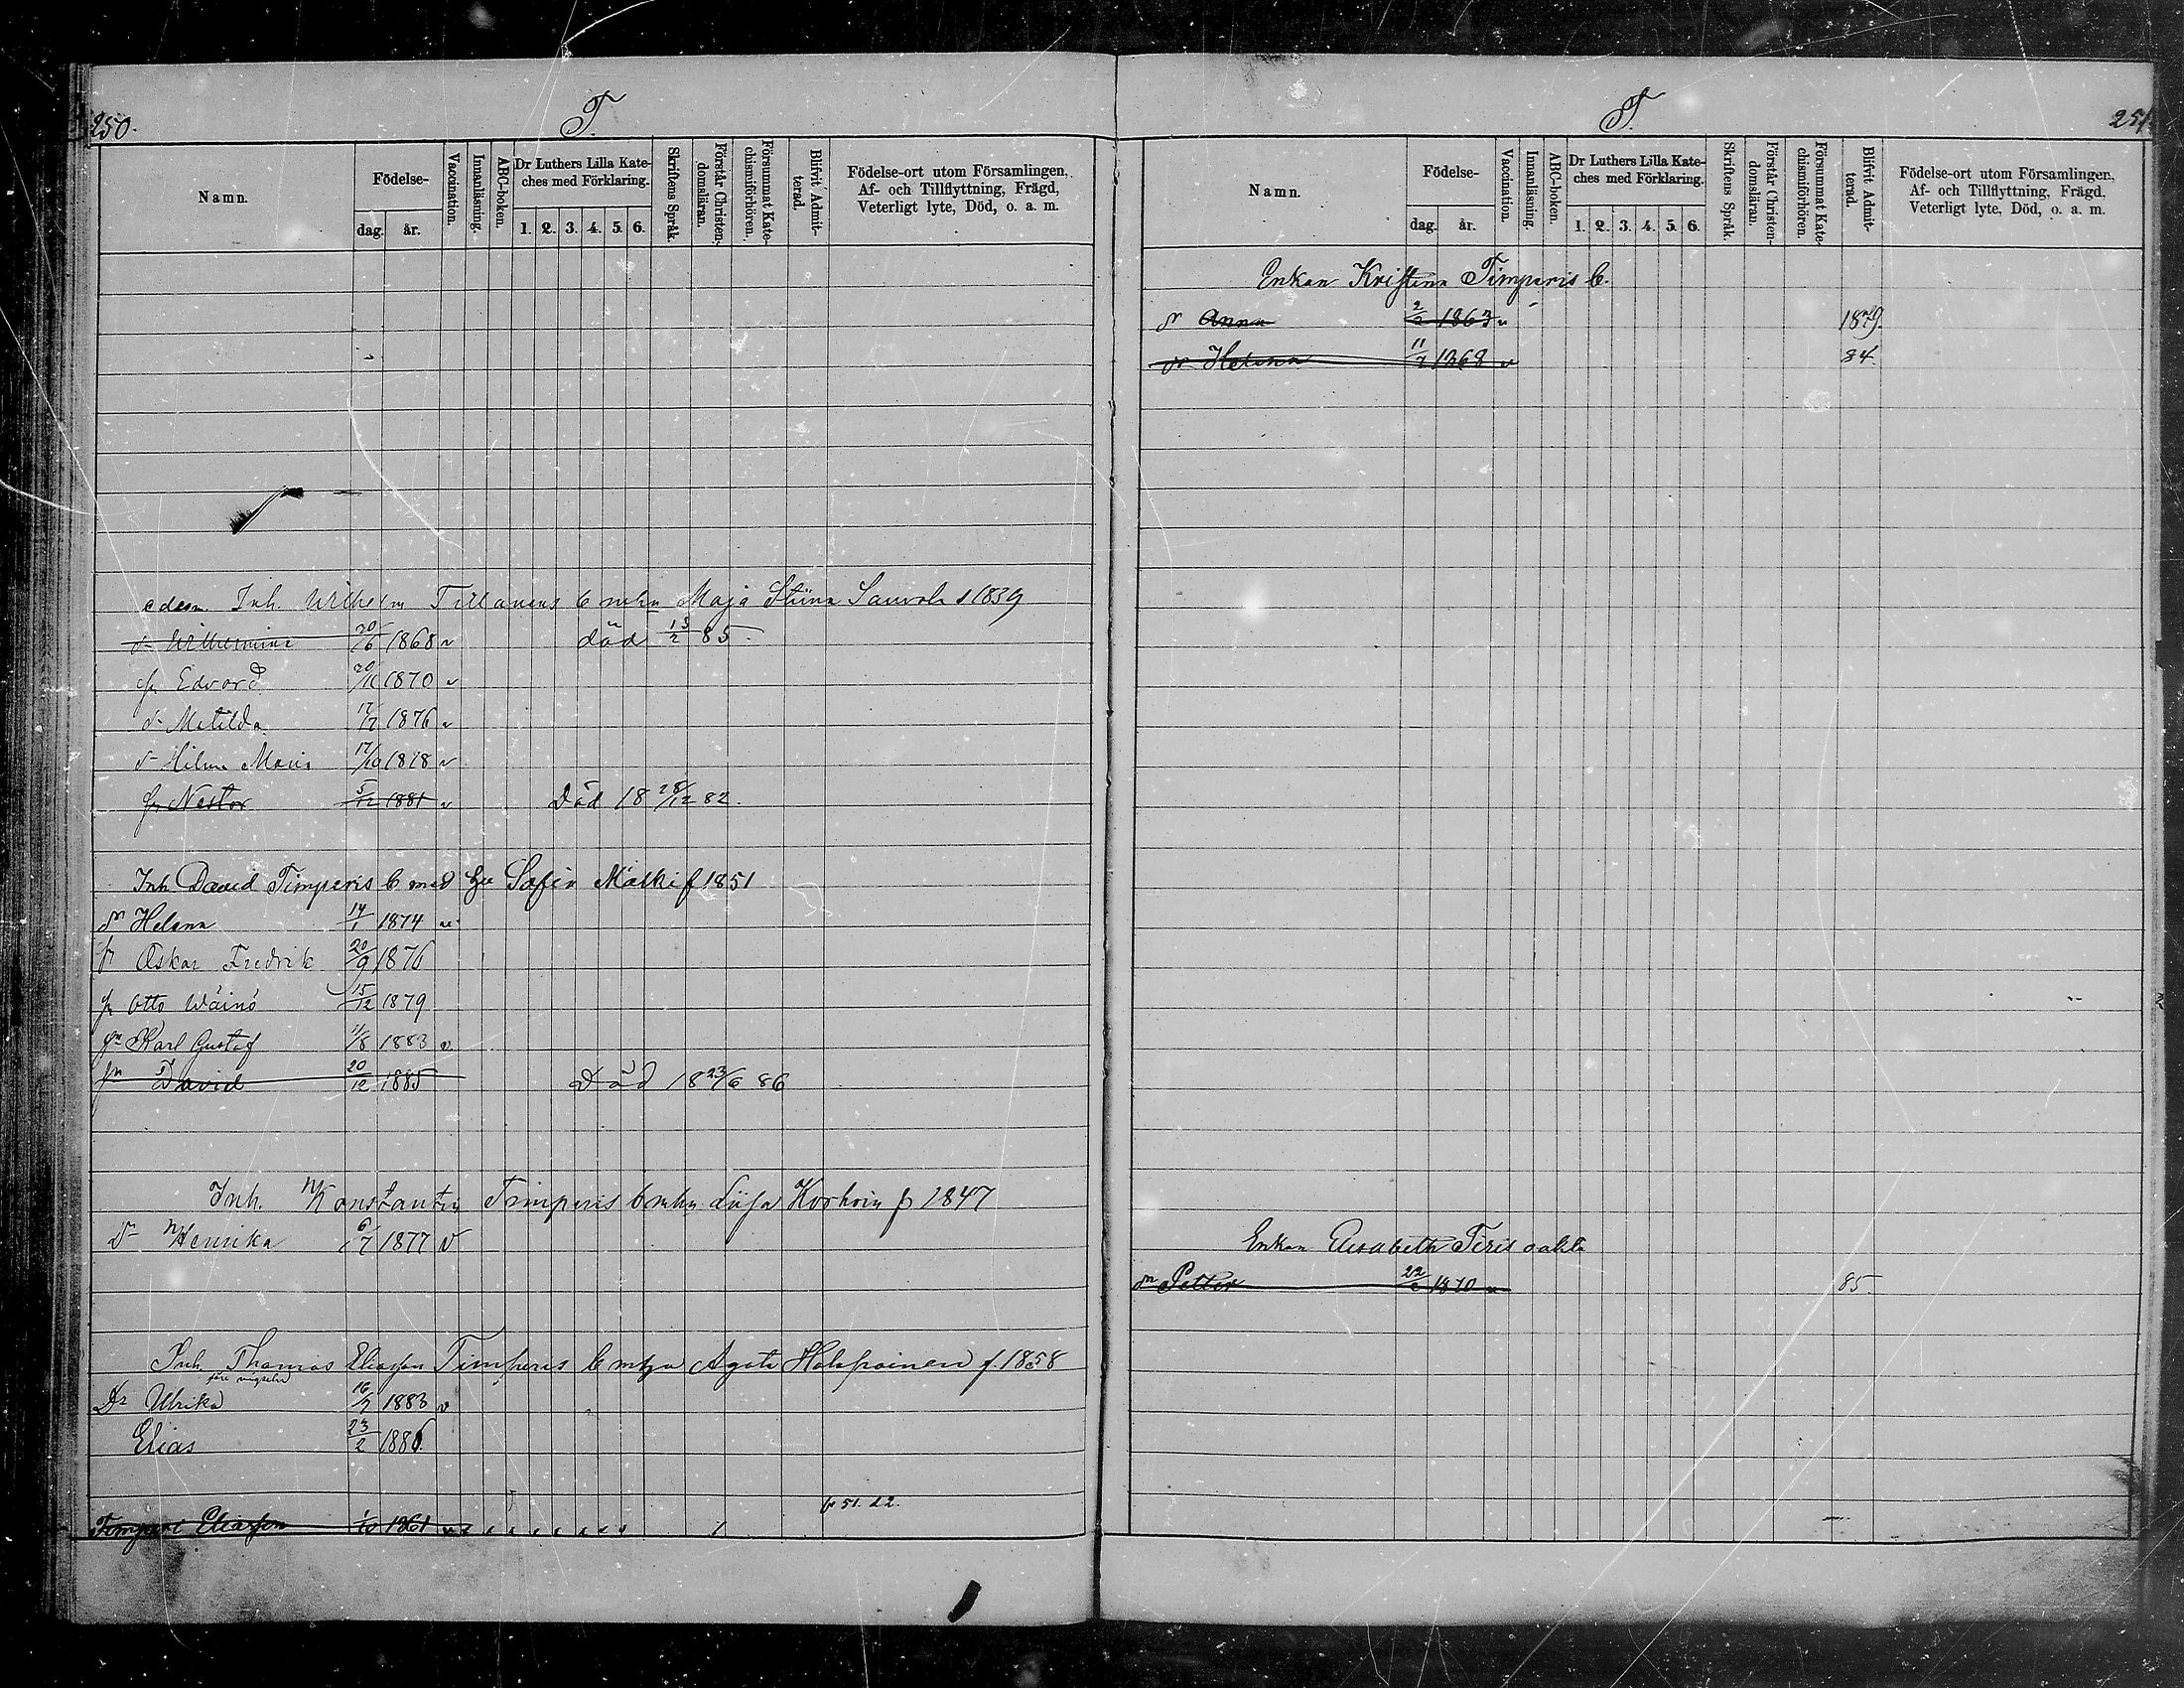 250.
T.
Namn.
Födelse-
dag. år.
Vaccination.
Innanläsning.
ABC-boken.
Dr Luthers Lilla Kate-
ches med Förklaring.
1. 2. 3. 4. 5. 6.
Skriftens Språk.
Förstår Christen-
domsläran.
Försummat Kate-
chismiförhören.
Blifvit Admit-
terad.
Födelse-ort utom Församlingen,
Af- och Tillflyttning, Frägd,
Veterligt lyte, Död, o. a. m.
Inh. Wilhelm b mhu Maja Stina 1839
dr Wilhelmina 20/6 1868 v död 13/2 85.
Edvard 20/11 1870 v
dr Matilda 17/7 1876 v
dr Hilma Maria 17/10 1878 v
Nestor 5/12 1881 v Död 18 28/12 82.
Inh David Timperis b med hu Sofia Mälki f 1851
dr Helena 14/1 1874 v
Oskar Fredrik 20/9 1876
Otto Wäinö 15/12 1879
Karl Gustaf 11/8 1883 v.
David 20/12 1885 Död 18 23/6 86
Inh. Konstantin Timperis b mhu Korhoin f 1847
Dr Henrika 6/7 1877 v
Inh Thomas Eliasson Timperis b mhu Agata Holopainen f. 1858
Dr Ulrika 16/7 1883 v
Elias 23/2 1886.
Timperi Eliasson 1/10 1861 v
251.
T.
Namn.
Födelse-
dag. år.
Vaccination.
Innanläsning.
ABC-boken.
Dr Luthers Lilla Kate-
ches med Förklaring.
1. 2. 3. 4. 5. 6.
Skriftens Språk.
Förstår Christen-
domsläran.
Försummat Kate-
chismiförhören.
Blifvit Admit-
terad.
Födelse-ort utom Församlingen,
Af- och Tillflyttning, Frägd,
Veterligt lyte, Död, o. a. m.
Enkan Kristina Timperis b.
dr Anna 2/2 1863 v 1879.
dr Helena 11/7 1868 v 84.
Enkan Elisabeth
Petter 1870 85.